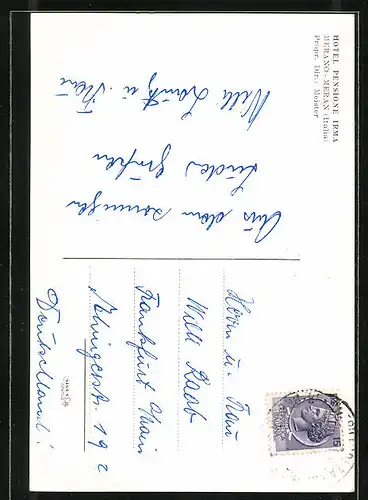 HOTEL PENSIONE IRMA
MERANO-MERAN (Italia)
Propr. Dir.: Meister
Aus dem sonnigen
Süden grüßen
Willi u. Frau
Herrn u. Frau
Willi Raab
Frankfurt Main
19 2
Deutschland!
15